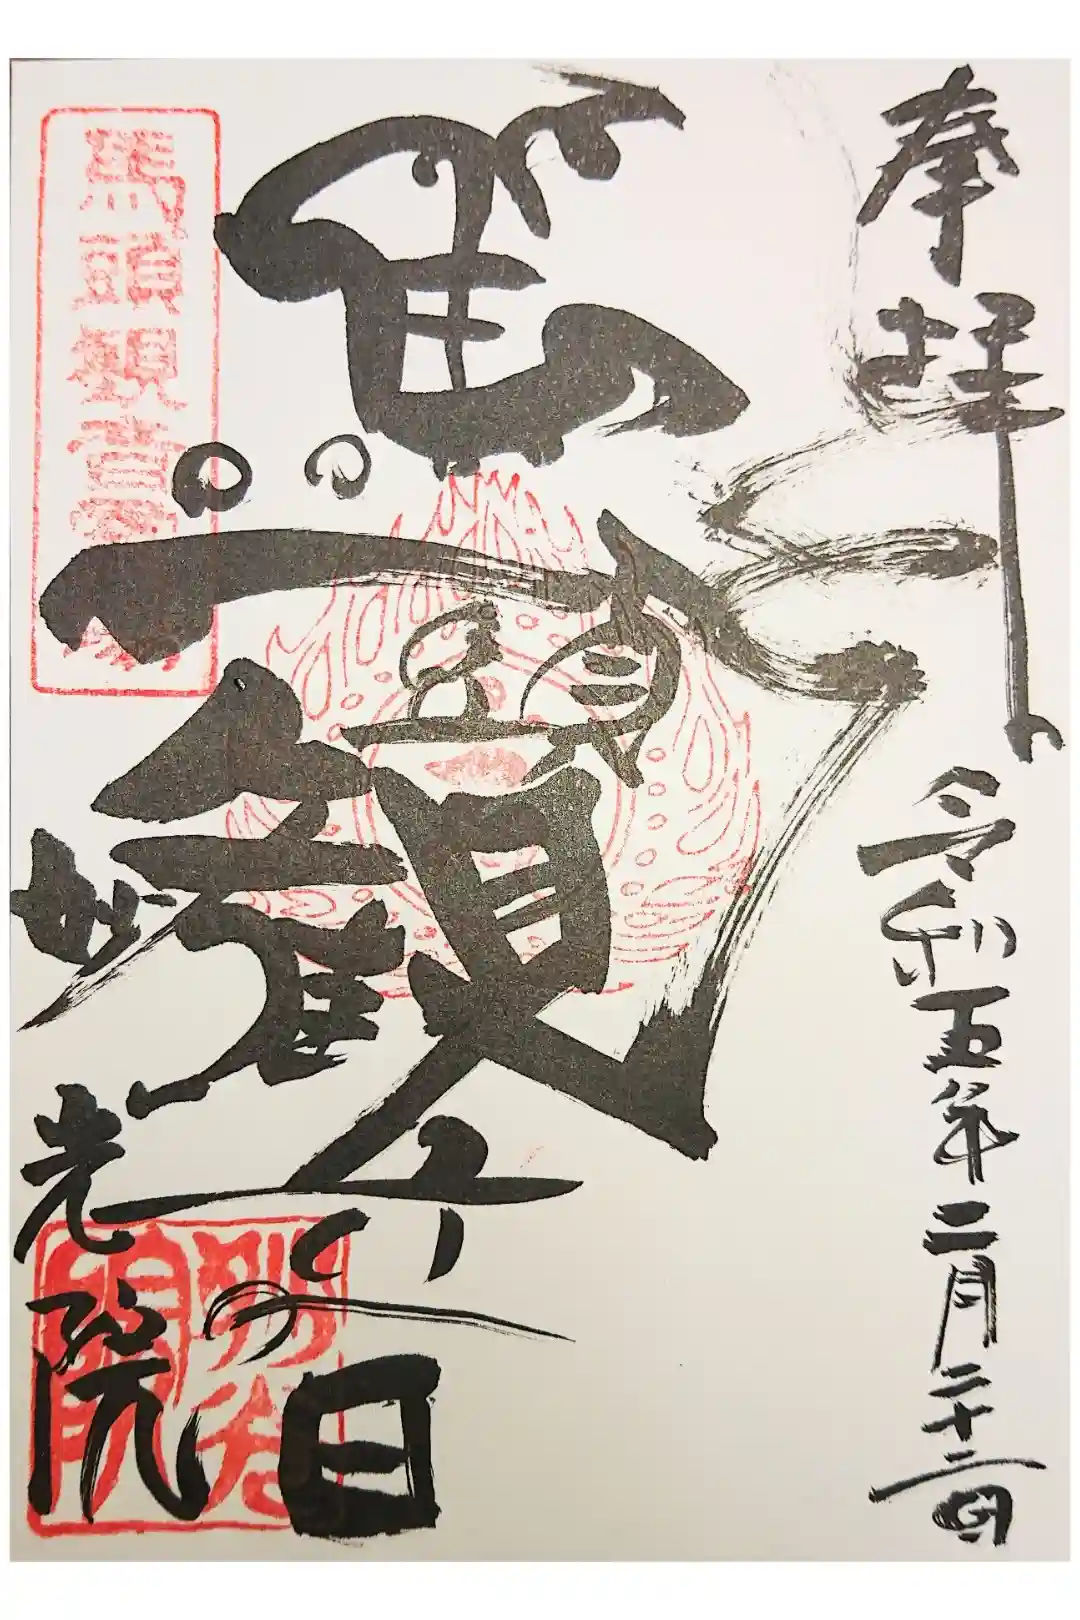 奉拝
令和五年二月二十二日
馬頭観音
妙光院
馬頭観音
妙光院